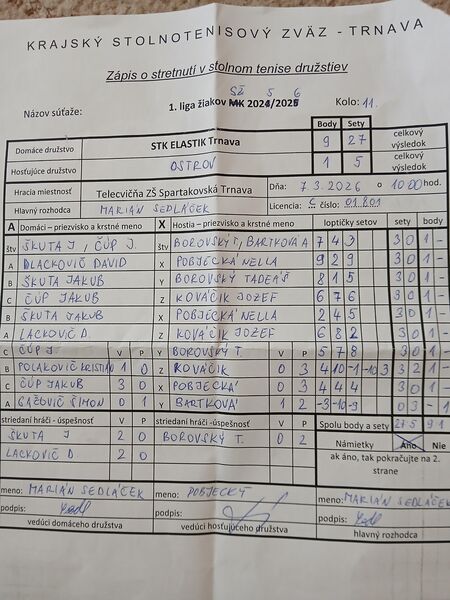 KRAJSKÝ STOLNOTENISOVÝ ZVÄZ - TRNAVA
Zápis o stretnutí v stolnom tenise družstiev
SŽ 5 6
Názov súťaže: 1. liga žiakov MK 2024/2025 Kolo: 11.
Body Sety
Domáce družstvo STK ELASTIK Trnava 9 27 celkový výsledok
Hosťujúce družstvo OSTROV 1 5 celkový výsledok
Hracia miestnosť Telecvičňa ZŠ Spartakovská Trnava Dňa: 7.3.2026 o 10 00 hod.
Hlavný rozhodca MARIÁN SEDLÁČEK Licencia: C číslo: 01801
A Domáci - priezvisko a krstné meno X Hostia – priezvisko a krstné meno loptičky setov sety body
štv ŠKUTA J , ČÚP J. štv BOROVSKÝ T, BARTKOVÁ A 7 4 3 3 0 1 -
A DLACKOVIČ DAVID X POBJECKÁ NELLA 9 2 9 3 0 1 -
B ŠKUTA JAKUB Y BOROVSKÝ TADEÁŠ 8 1 5 3 0 1 -
C ČÚP JAKUB Z KOVÁČIK JOZEF 6 7 6 3 0 1 -
B ŠKUTA JAKUB X POBJECKÁ NELLA 2 4 5 3 0 1 -
A LACKOVIČ D. Z KOVÁČIK JOZEF 6 8 2 3 0 1 -
C ČÚP J V P Y BOROVSKÝ T. V P 5 7 8 3 0 1 -
B POLAKOVIČ KRISTIÁN 1 0 Z KOVÁČIK 0 3 4 10 -1 -10 3 3 2 1 -
C ČÚP JAKUB 3 0 X POBJECKÁ 0 3 4 4 4 3 0 1 -
A GAŽOVIČ ŠIMON 0 1 Y BARTKOVÁ 1 2 -3 -10 -9 0 3 - 1
striedaní hráči - úspešnosť V P striedaní hráči -úspešnosť V P Spolu body a sety 27:5 9:1
ŠKUTA J 2 0 BOROVSKÝ T. 0 2 Námietky Áno Nie
LACKOVIČ D 2 0 ak áno, tak pokračujte na 2. strane
meno: MARIÁN SEDLÁČEK meno: POBJECKÝ meno: MARIÁN SEDLÁČEK
podpis: podpis: podpis:
vedúci domáceho družstva vedúci hosťujúceho družstva hlavný rozhodca